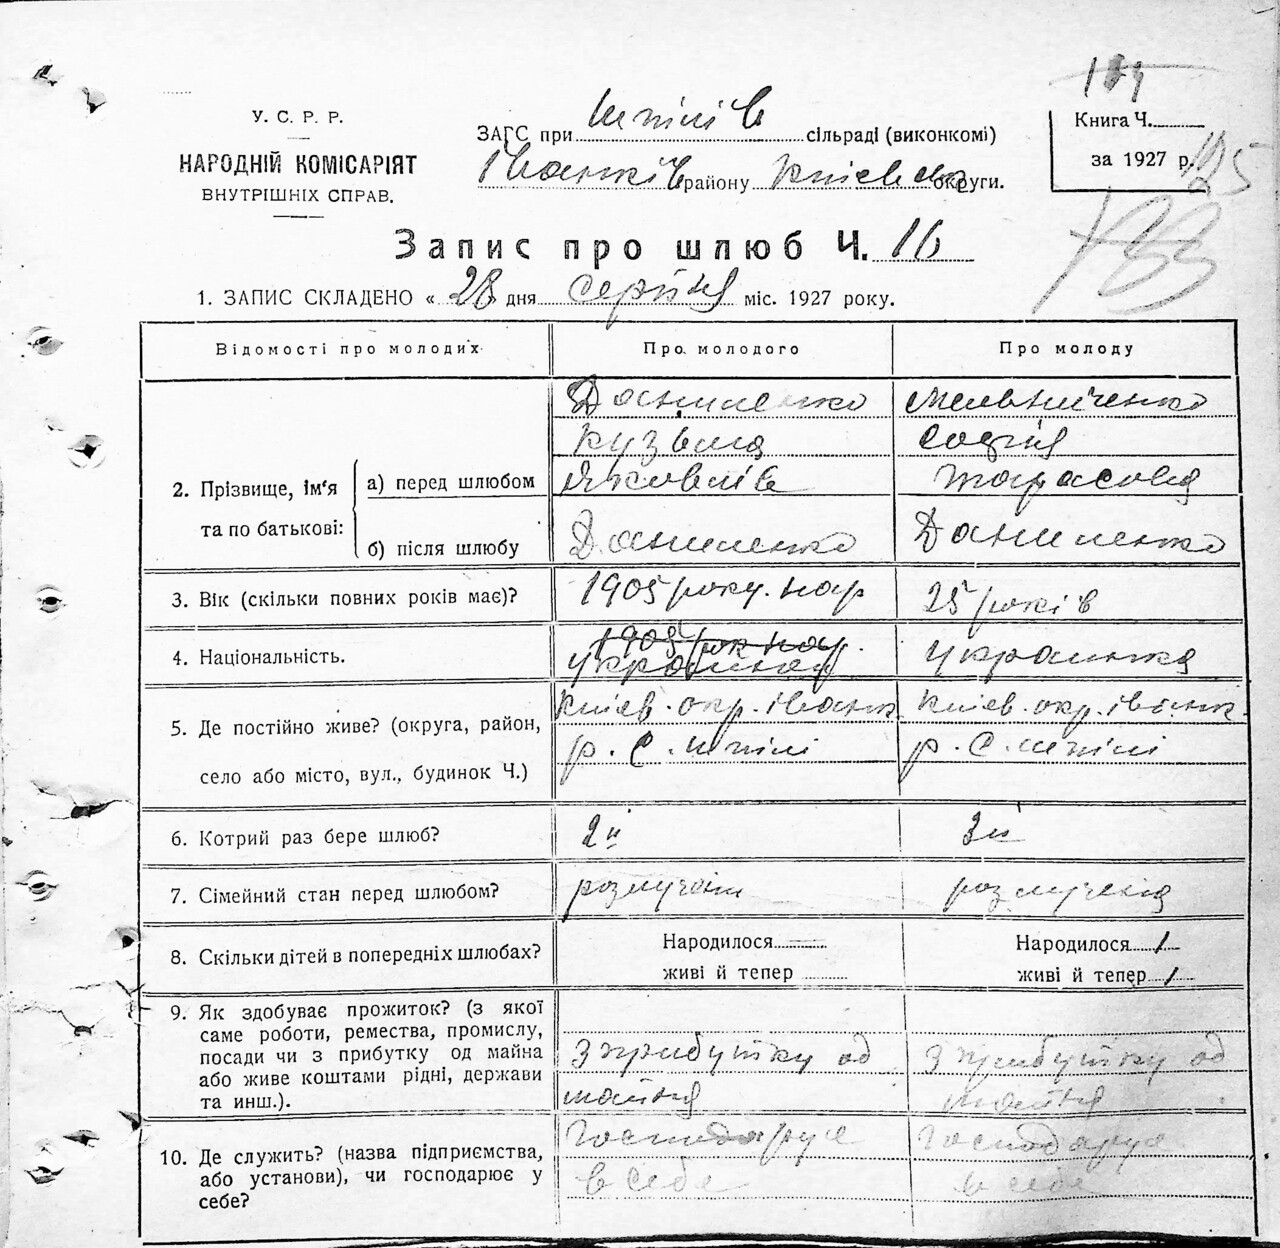 У. С. Р. Р.
НАРОДНІЙ КОМІСАРІЯТ
ВНУТРІШНІХ СПРАВ.
ЗАГС при Шпілів сільраді (виконкомі)
Іванків району Київськ округи.
Книга Ч.
за 1927 р.
Запис про шлюб Ч. 16
1. ЗАПИС СКЛАДЕНО « 28 » дня серпня міс. 1927 року.
Відомості про молодих
Про молодого
Про молоду
2. Прізвище, ім'я та по батькові:
а) перед шлюбом
Даниленко
Кузьма
Яковлів
Мельниченко
Софія
Тарасова
б) після шлюбу
Даниленко
Даниленко
3. Вік (скільки повних років має)?
1905 року. нар
25 років
4. Національність.
1905 рок нар.
українец
українка
5. Де постійно живе? (округа, район,
село або місто, вул., будинок Ч.)
Київ. окр. іванк
р. С. Шпілі
Київ. окр. іванк.
р. С. Шпілі
6. Котрий раз бере шлюб?
2й
7. Сімейний стан перед шлюбом?
розлучена
8. Скільки дітей в попередніх шлюбах?
Народилося —
живі й тепер
Народилося 1
живі й тепер 1
9. Як здобуває прожиток? (з якої
саме роботи, ремества, промислу,
посади чи з прибутку од майна
або живе коштами рідні, держави
та инш.).
З прибутку од
майна
З прибутку од
майна
10. Де служить? (назва підприємства,
або установи), чи господарює у
себе?
Господарує
в себе
Господарує
в себе